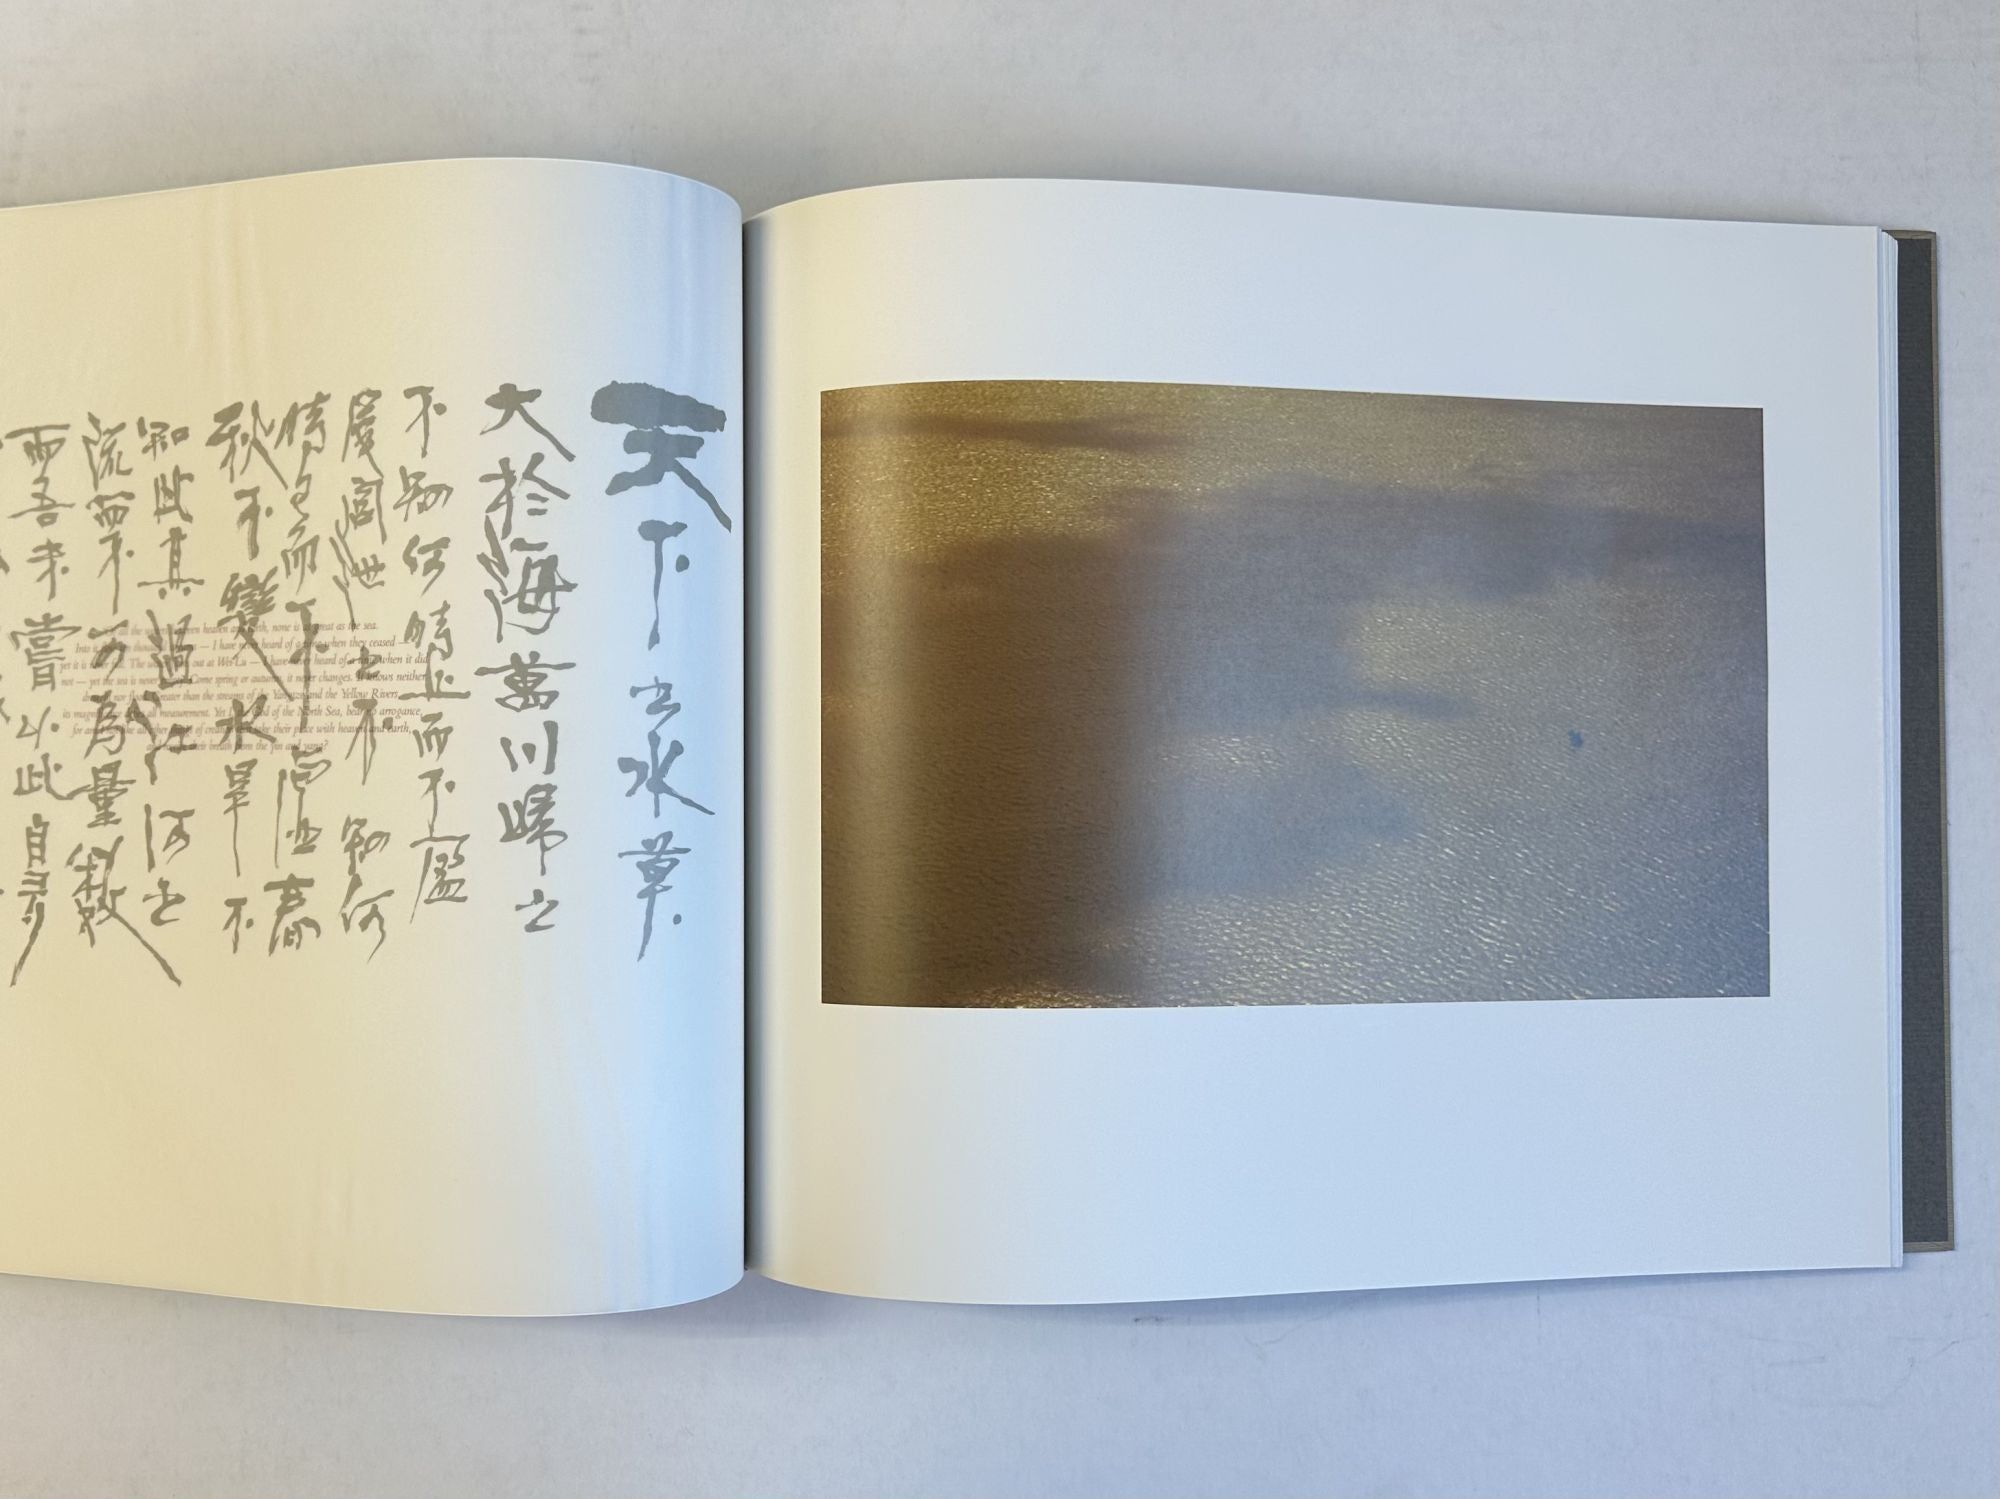 天下之水莫
大於海萬川歸之
不知何時止而不盈
尾閭泄之不知何
時已而不虛春
秋不變水旱不
知此其過江河之
流而不可為量數
而吾未嘗以此自多
all the heaven and earth, none is as great as the sea.
Into it — I have never heard of a time when they ceased —
yet it is never full. The out at Wei-Lu — I have never heard of a time when it did
not — yet the sea is never Come spring or autumn, it never changes. It knows neither
nor flood. greater than the streams of the Yangtze and the Yellow Rivers,
its all measurement. Yet I, God of the North Sea, bear no arrogance,
for all other of creation take their place with heaven and earth,
their breath from the yin and yang?